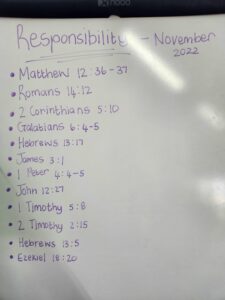 Responsibility - November
2022
• Matthew 12:36-37
• Romans 14:12
• 2 Corinthians 5:10
• Galatians 6:4-5
• Hebrews 13:17
• James 3:1
• 1 Peter 4:4-5
• John 12:27
• 1 Timothy 5:8
• 2 Timothy 2:15
• Hebrews 13:5
• Ezekiel 18:20